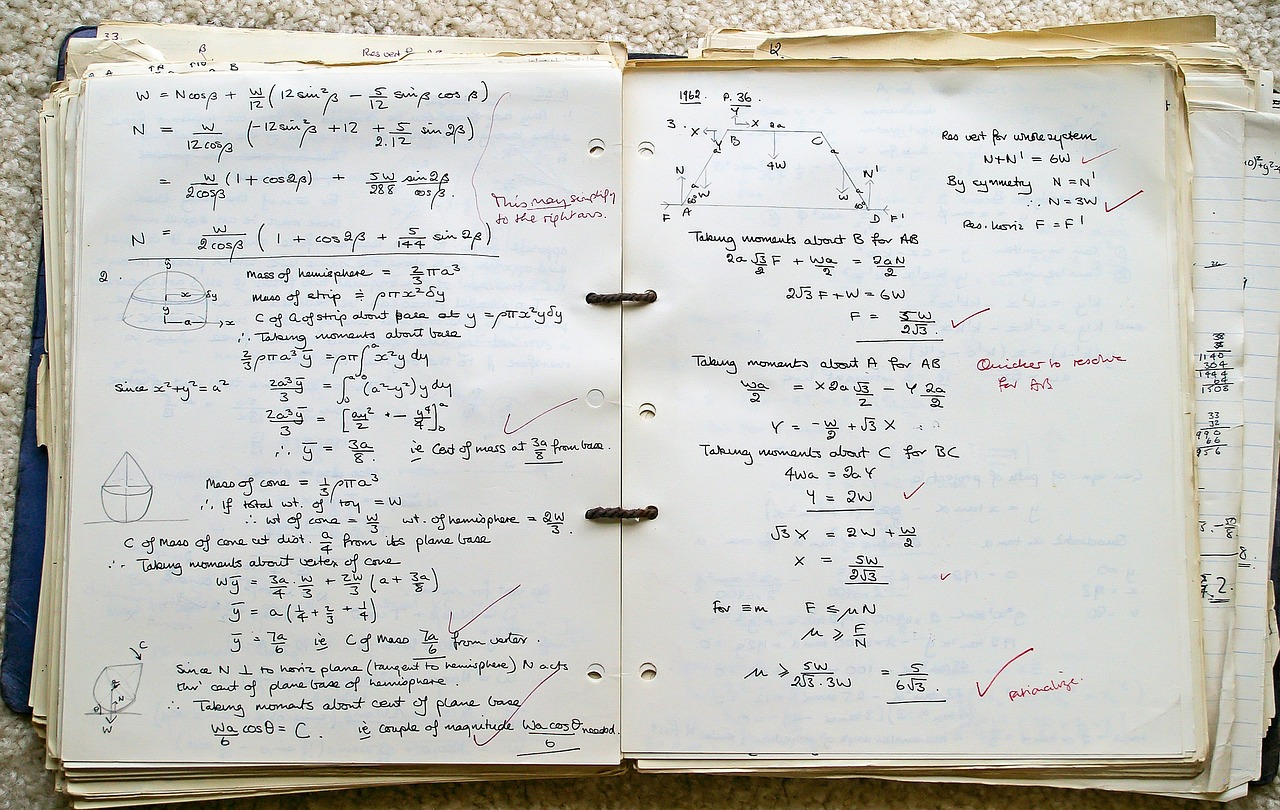 33.
β
Res vert
B
W = Ncosβ + W/12 (12sin²β − 5/12 sinβ cosβ)
N = W/12cosβ (−12sin²β + 12 + 5/2.12 sin2β)
= W/2cosβ (1 + cos2β) + 5W/288 sin2β/cosβ.
This may simplify
to the right ans.
N = W/2cosβ (1 + cos2β + 5/144 sin2β)
2.
y
x δy
y
a x
Mass of hemisphere = 2/3 πa³
Mass of strip ≑ ρπx²δy
C of G of strip about base at y = ρπx²yδy
∴ Taking moments about base
2/3 ρπa³ȳ = ρπ∫₀ᵃ x²y dy
Since x²+y²=a² 2a³ȳ/3 = ∫₀ᵃ (a²−y²)y dy
2a³ȳ/3 = [ay²/2 − y⁴/4]₀ᵃ
∴ ȳ = 3a/8 ie Cent of mass at 3a/8 from base.
Mass of cone = 1/3 ρπa³
∴ If total wt. of toy = W
∴ wt of cone = W/3 wt. of hemisphere = 2W/3.
C of Mass of cone at dist. a/4 from its plane base
∴ Taking moments about vertex of cone
Wȳ = 3a/4 . W/3 + 2W/3 (a + 3a/8)
ȳ = a(1/4 + 2/3 + 1/4)
ȳ = 7a/6 ie C of Mass 7a/6 from vertex.
C
θ
N
W
Since N ⊥ to horiz plane (tangent to hemisphere) N acts
thro' cent of plane base of hemisphere.
∴ Taking moments about cent of plane base
Wa/6 cosθ = C. ie couple of magnitude Wa cosθ/6 needed.
62.
1962. P. 36.
Y
X 2a
3. X B C
Y a a
4W
N N'
a a
W W
60° 60°
F A D F'
Res vert for whole system
N+N' = 6W
By symmetry N = N'
∴ N = 3W
Res. horiz F = F'
Taking moments about B for AB
2a √3/2 F + Wa/2 = 2aN/2
2√3 F + W = 6W
F = 5W/2√3.
Taking moments about A for AB
Quicker to resolve
for AB
Wa/2 = X 2a √3/2 − Y 2a/2
Y = −W/2 + √3 X
Taking moments about C for BC
4Wa = 2aY
Y = 2W
√3 X = 2W + W/2
X = 5W/2√3
For ≡m F ≤ μN
μ ≥ F/N
μ ≥ 5W/2√3.3W = 5/6√3.
rationalize.
38
38
1140
304
1444
64
1508
33
32
990
66
956